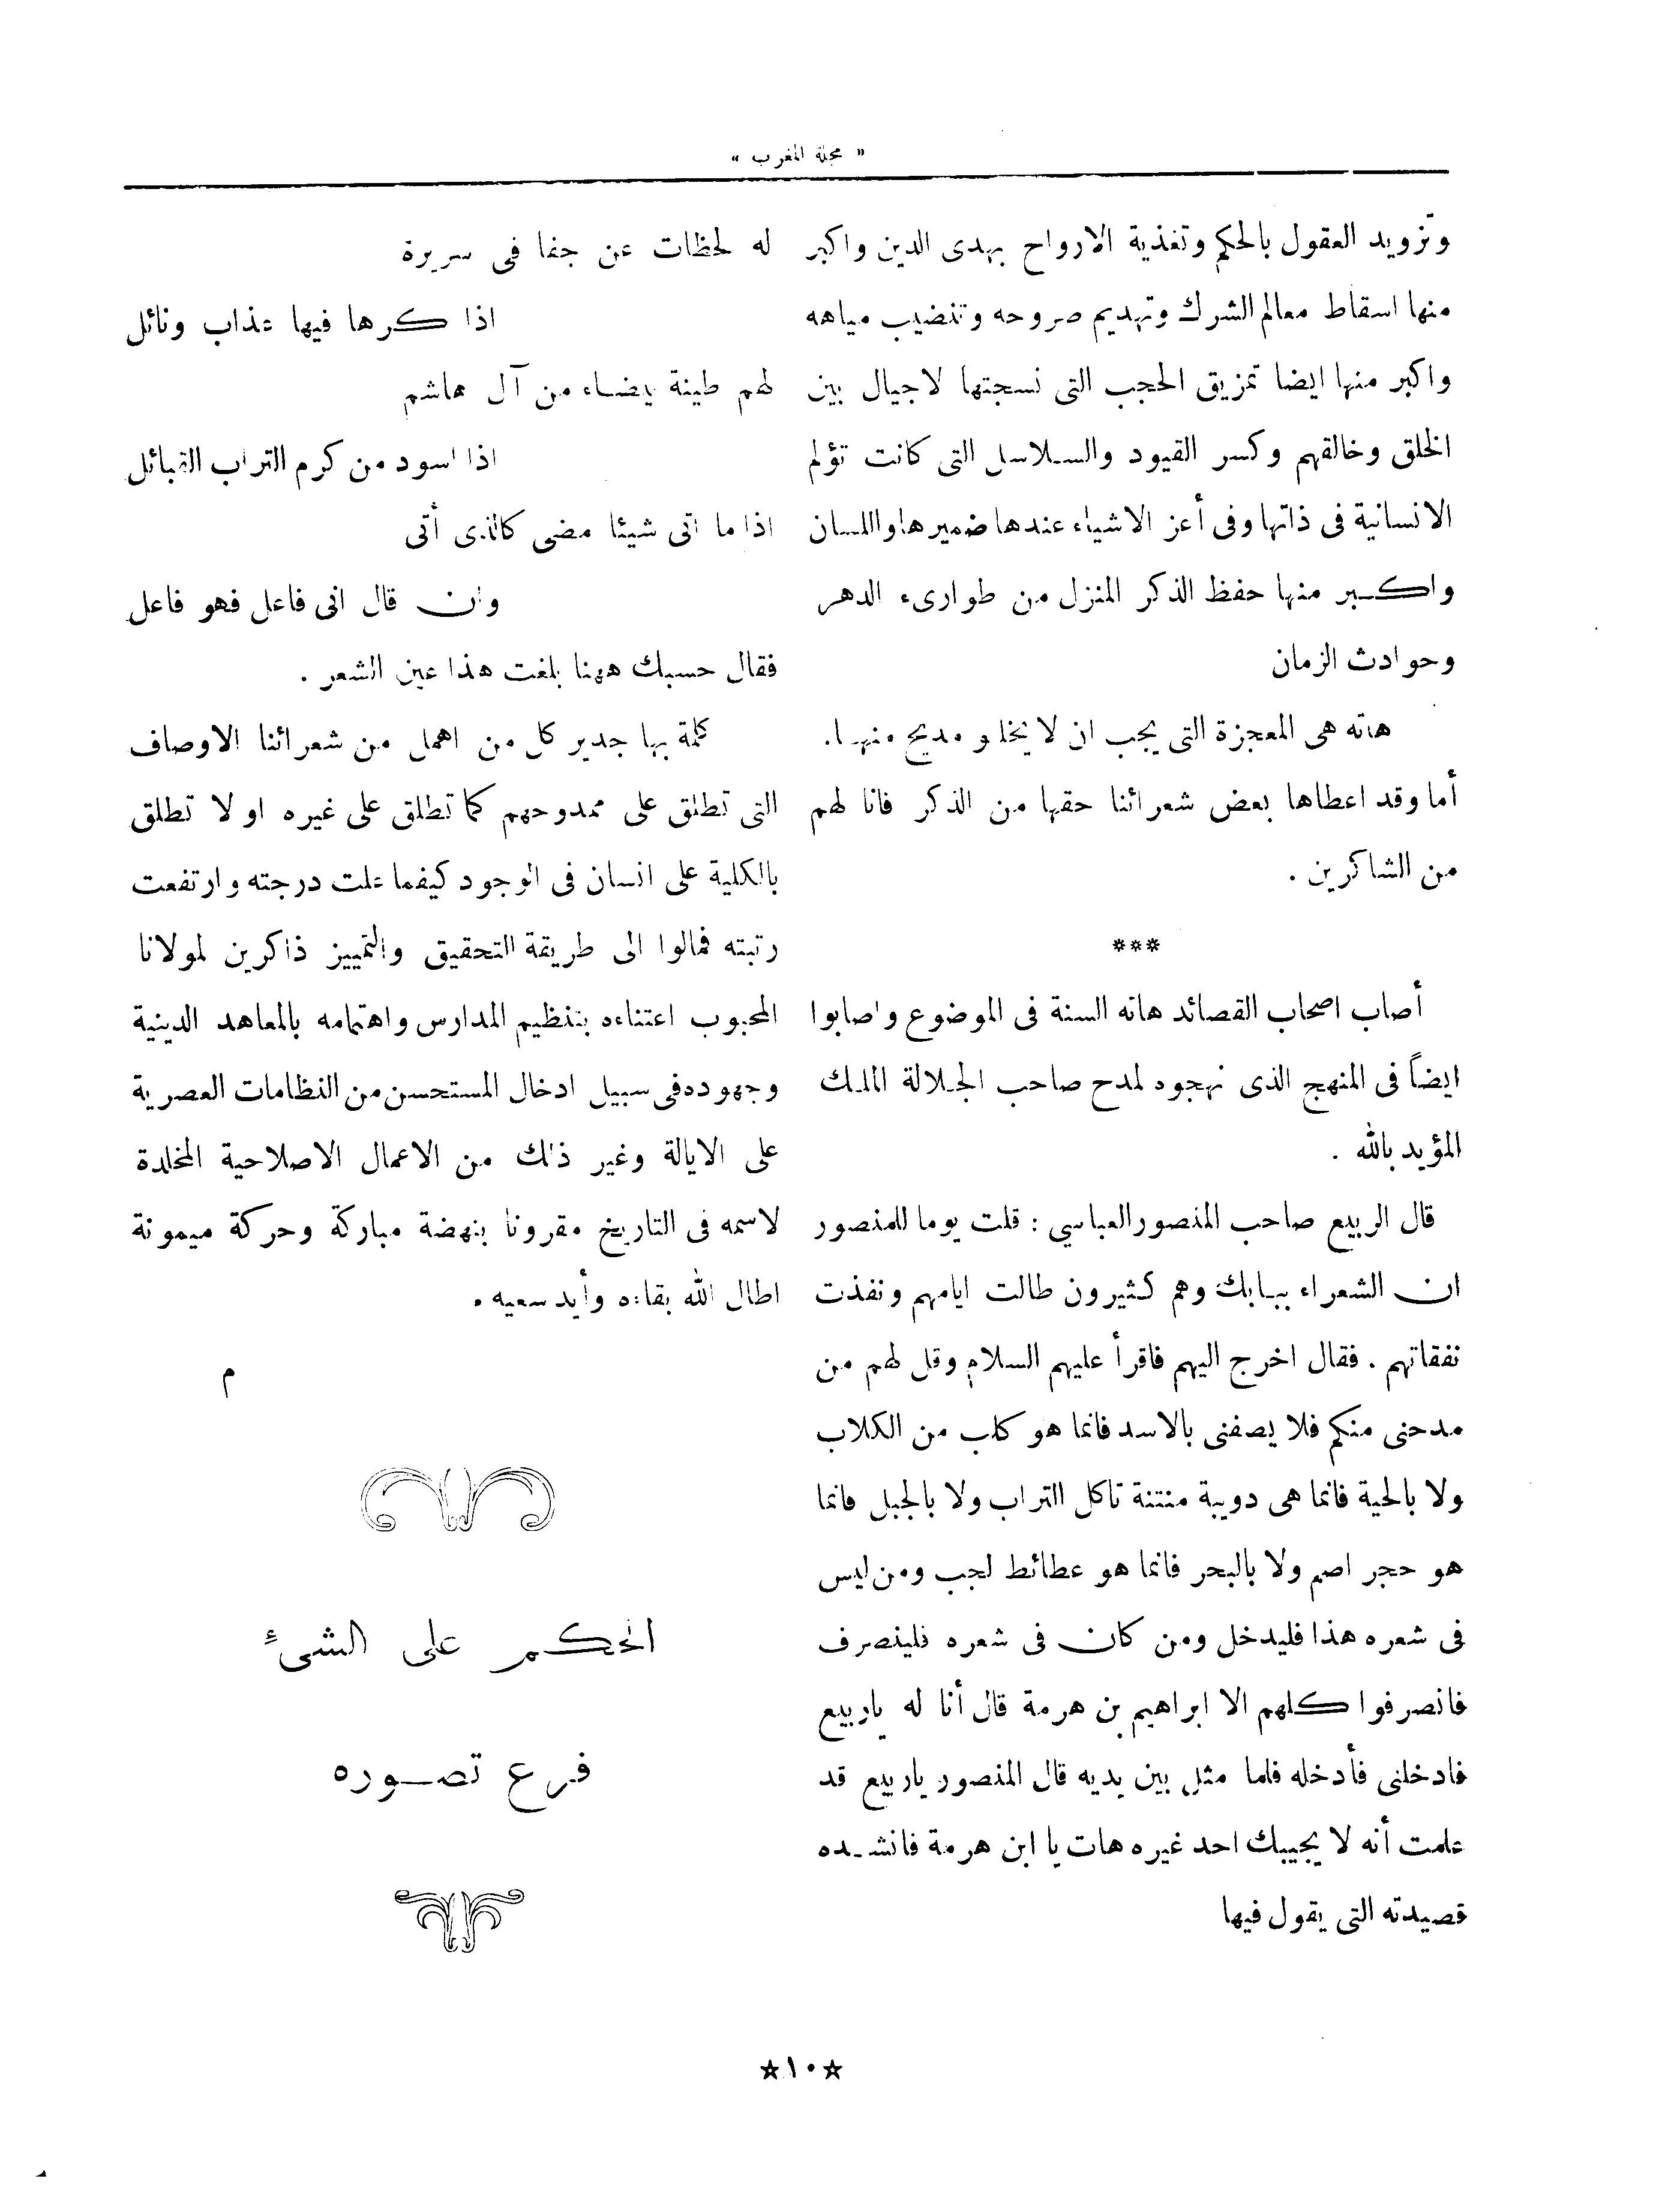 « مجلة المغرب »
وتزويد العقول بالحكم وتغذية الارواح بهدى الدين واكبر
منها اسقاط معالم الشرك وتهديم صروحه وتنضيب مياهه
واكبر منها ايضا تمزيق الحجب التى نسجتها لاجيال بين
الخلق وخالقهم وكسر القيود والسلاسل التى كانت تؤلم
الانسانية فى ذاتها وفى أعز الاشياء عندها ضميرها واللسان
واكبر منها حفظ الذكر المنزل من طوارىء الدهر
وحوادث الزمان
هاته هى المعجزة التى يجب ان لا يخلو مديح منها.
أما وقد اعطاها بعض شعرائنا حقها من الذكر فانا لهم
من الشاكرين .
***
أصاب اصحاب القصائد هاته السنة فى الموضوع واصابوا
ايضاً فى المنهج الذى نهجوه لمدح صاحب الجلالة الملك
المؤيد بالله .
قال الربيع صاحب المنصور العباسي : قلت يوما للمنصور
ان الشعراء ببابك وهم كثيرون طالت ايامهم ونفذت
نفقاتهم . فقال اخرج اليهم فاقرأ عليهم السلام وقل لهم من
مدحنى منكم فلا يصفنى بالاسد فانما هو كلب من الكلاب
ولا بالحية فانما هى دويبة منتنة تاكل التراب ولا بالجبل فانما
هو حجر اصم ولا بالبحر فانما هو عطائط لجب ومن ليس
فى شعره هذا فليدخل ومن كان فى شعره فلينصرف
فانصرفوا كلهم الا ابراهيم بن هرمة قال أنا له ياربيع
فادخلنى فأدخله فلما مثل بين يديه قال المنصور ياربيع قد
علمت أنه لا يجيبك احد غيره هات يا ابن هرمة فانشده
قصيدته التى يقول فيها
له لحظات عن جفا فى سريرة
اذا كرها فيها عذاب ونائل
لهم طينة بيضاء من آل هاشم
اذا اسود من كرم التراب القبائل
اذا ما اتى شيئا مضى كالذى أتى
وان قال انى فاعل فهو فاعل
فقال حسبك ههنا بلغت هذا عين الشعر .
كلمة بها جدير كل من اهمل من شعرائنا الاوصاف
التى تطلق على ممدوحهم كما تطلق على غيره او لا تطلق
بالكلية على انسان فى الوجود كيفما علت درجته وارتفعت
رتبته فمالوا الى طريقة التحقيق والتمييز ذاكرين لمولانا
المحبوب اعتناءه بتنظيم المدارس واهتمامه بالمعاهد الدينية
وجهوده فى سبيل ادخال المستحسن من النظامات العصرية
على الايالة وغير ذلك من الاعمال الاصلاحية المخلدة
لاسمه فى التاريخ مقرونا بنهضة مباركة وحركة ميمونة
اطال الله بقاءه وأيد سعيه .
م
الحكم على الشىء
فرع تصوره
☆١٠☆